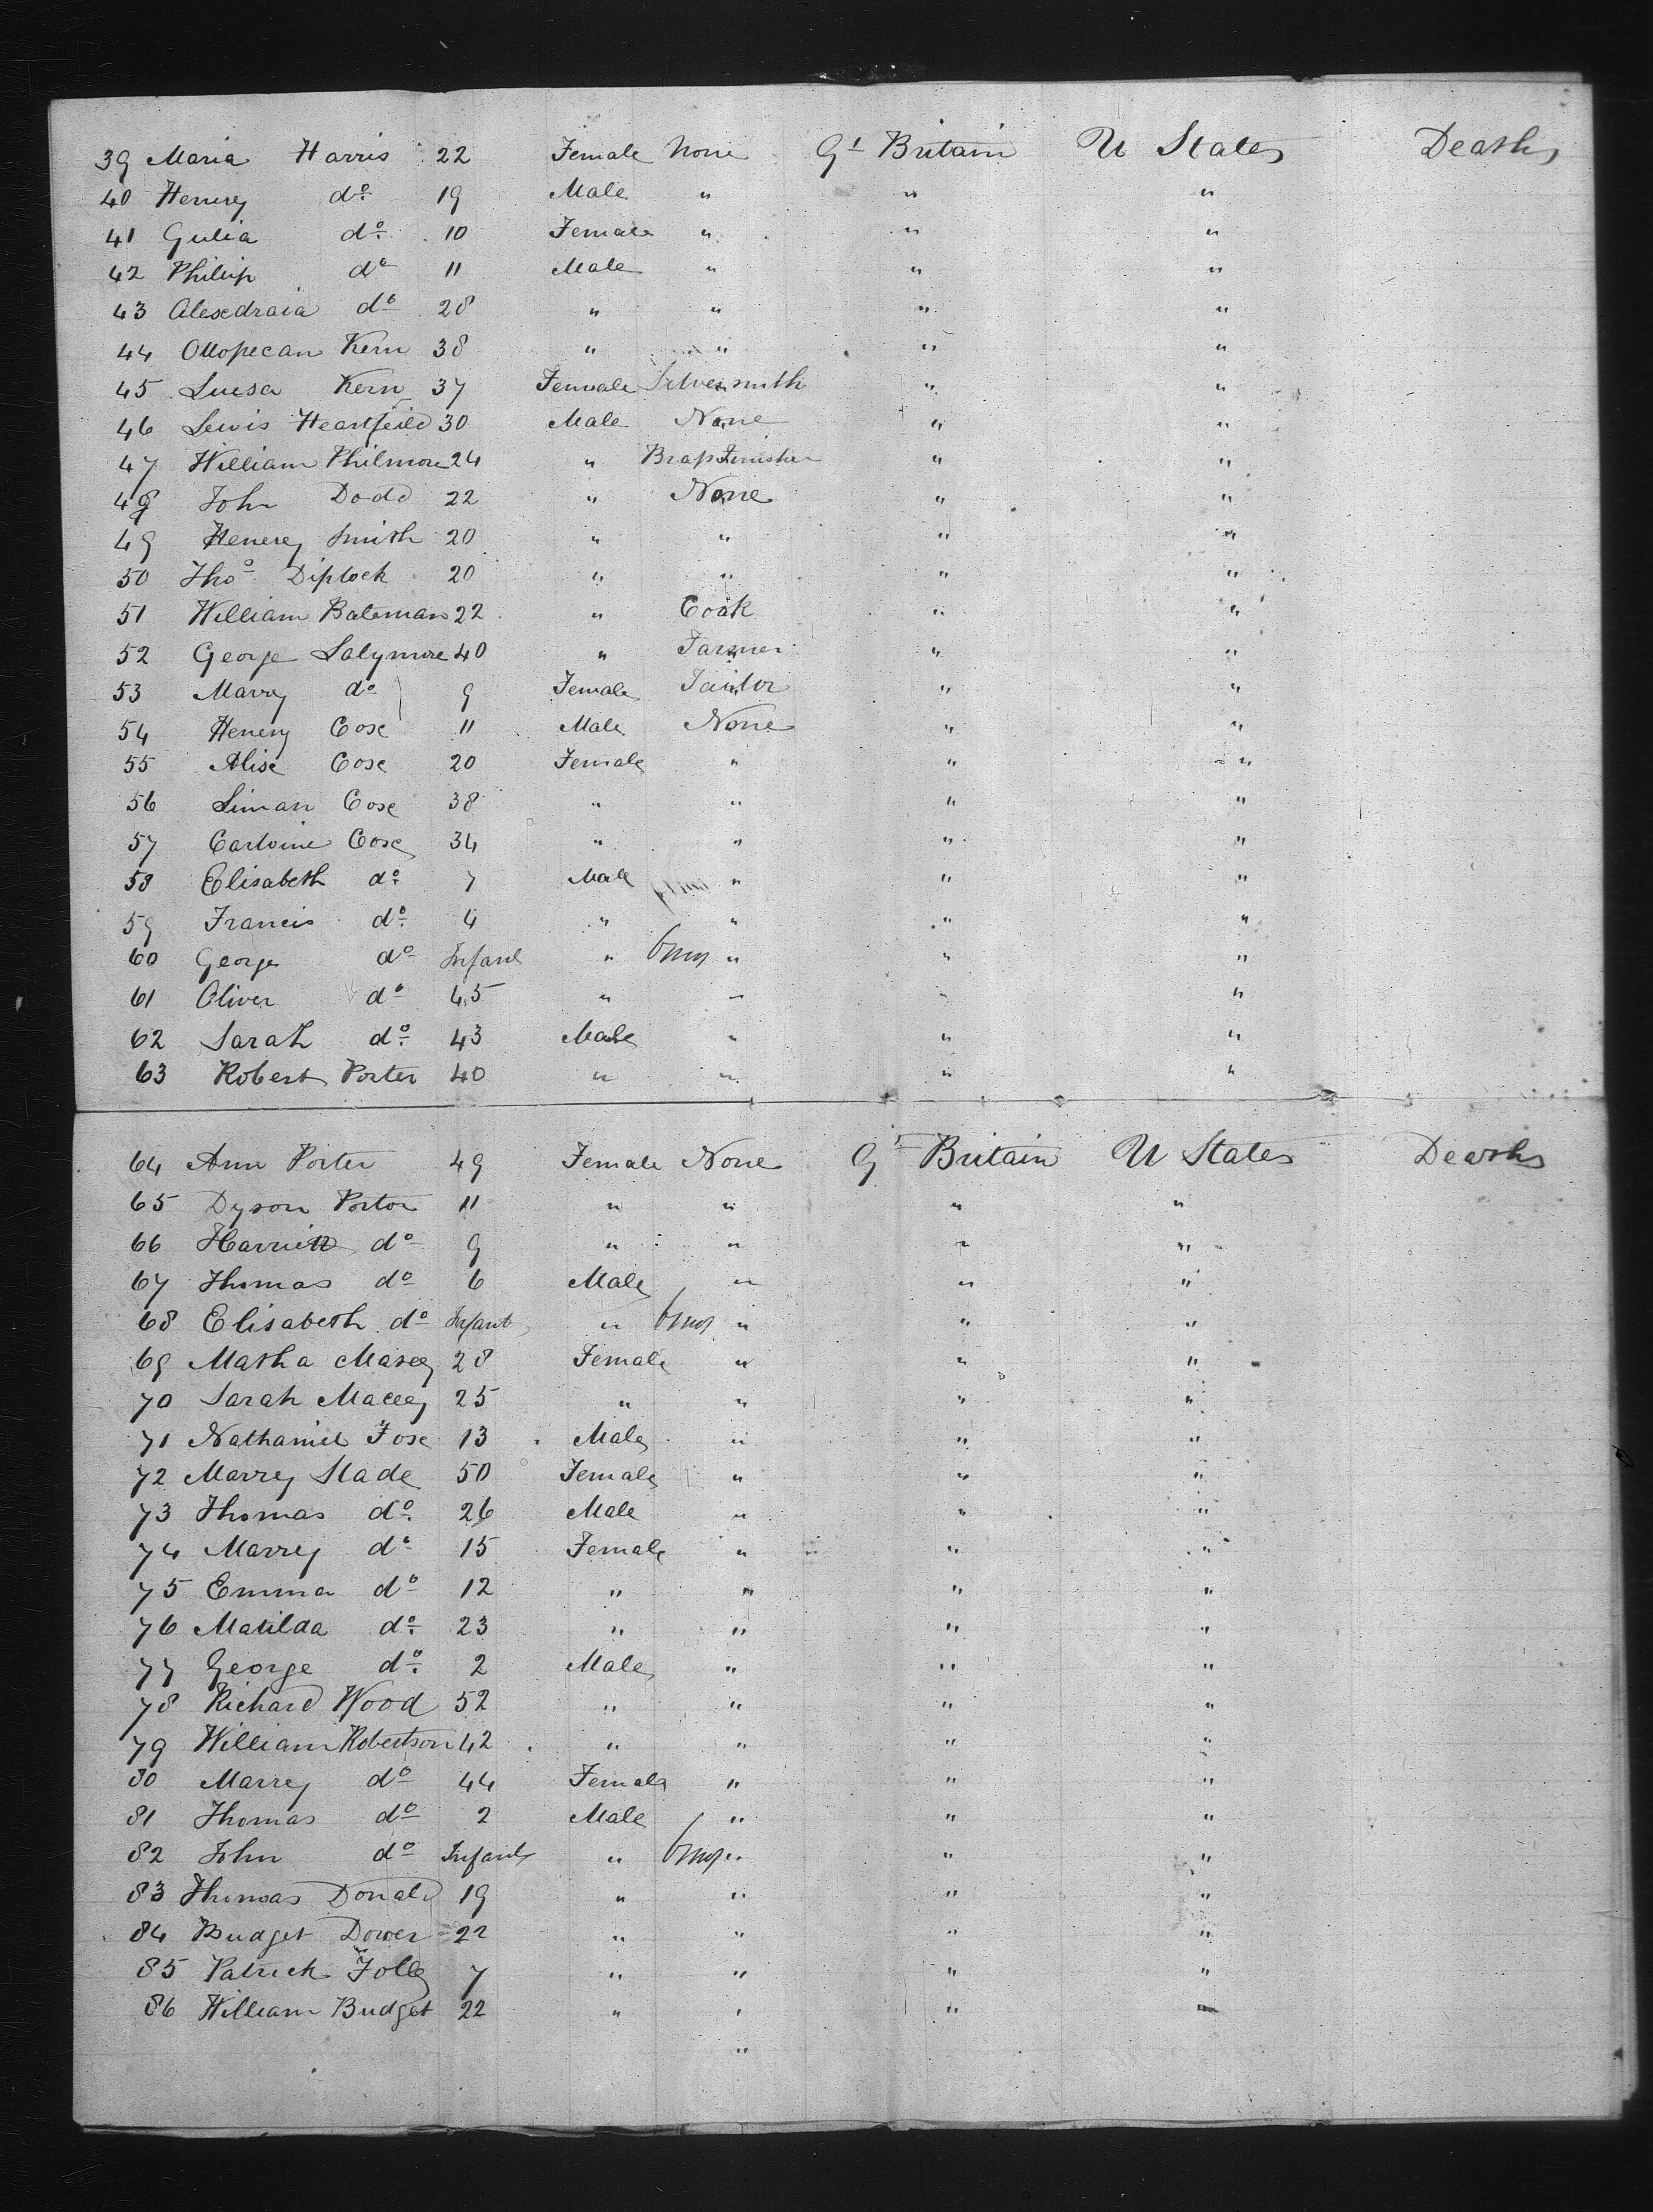 39 Maria Harris 22 Female None Gt Britain U States Deaths
40 Henery do 19 Male " " "
41 Gulia do 10 Female " " "
42 Phillip do 11 Male " " "
43 Alexdraia do 28 " " " "
44 Kern 38 " " " "
45 Luesa Kern 37 Female Silversmith " "
46 Lewis Heartfeild 30 Male None " "
47 William Philmore 24 " Brassfinisher " "
48 John Dodd 22 " None " "
49 Henerey Smith 20 " " " "
50 Thos Diplock 20 " " " "
51 William Bateman 22 " Cook " "
52 George Salymore 40 " Farmer " "
53 Marrey do 9 Female Tailor " "
54 Henery Cox 11 Male None " "
55 Alise Cox 20 Female " " "
56 Siman Cox 38 " " " "
57 Carloine Cox 34 " " " "
58 Elisabeth do 7 Male " " "
59 Francis do 4 " " " "
60 George do Infant " 6 mos " " "
61 Oliver do 45 " " " "
62 Sarah do 43 Male " " "
63 Robert Porter 40 " " " "
64 Ann Porter 49 Female None Gt Britain U States Deaths
65 Dyson Porter 11 " " " "
66 Harriett do 9 " " " "
67 Thomas do 6 Male " " "
68 Elisabeth do Infant " 6 mos " " "
69 Matha Macey 28 Female " " "
70 Sarah Macey 25 " " " "
71 Nathaniel Fox 13 Male " " "
72 Marrey Slade 50 Female " " "
73 Thomas do 26 Male " " "
74 Marrey do 15 Female " " "
75 Emma do 12 " " " "
76 Matilda do 23 " " " "
77 George do 2 Male " " "
78 Richard Wood 52 " " " "
79 William Robertson 42 " " " "
80 Marrey do 44 Female " " "
81 Thomas do 2 Male " " "
82 John do Infant " 6 mos " " "
83 Thomas Donald 19 " " " "
84 Budget Dower 22 " " " "
85 Patrick Folley 7 " " " "
86 William Budget 22 " " " "
"